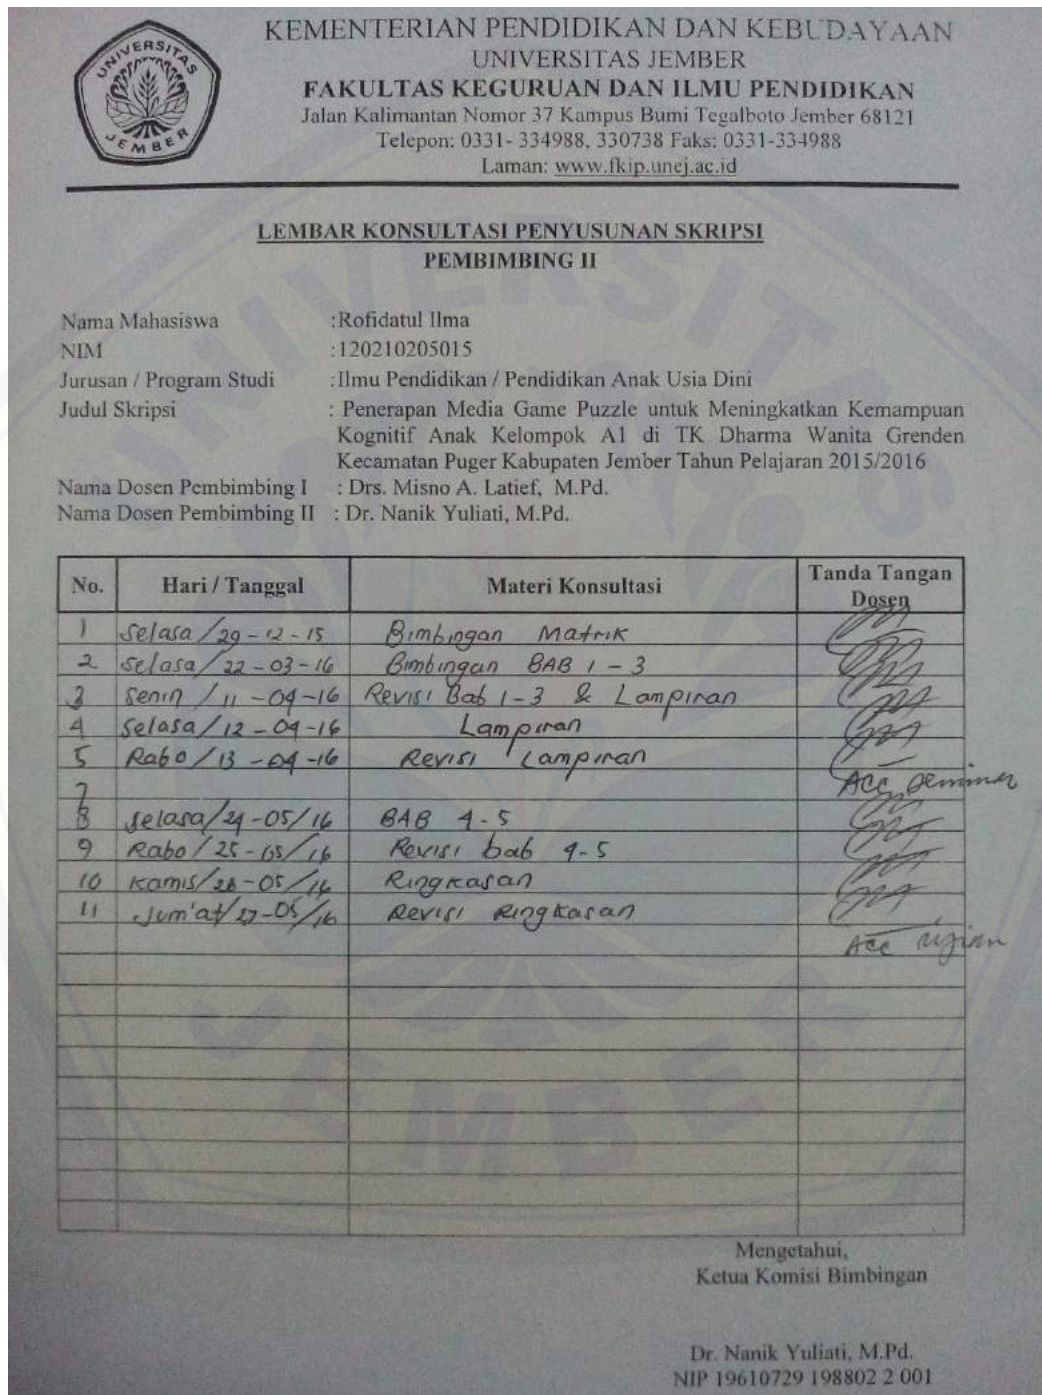 UNIVERSITAS
JEMBER
KEMENTERIAN PENDIDIKAN DAN KEBUDAYAAN
UNIVERSITAS JEMBER
FAKULTAS KEGURUAN DAN ILMU PENDIDIKAN
Jalan Kalimantan Nomor 37 Kampus Bumi Tegalboto Jember 68121
Telepon: 0331- 334988, 330738 Faks: 0331-334988
Laman: www.fkip.unej.ac.id
LEMBAR KONSULTASI PENYUSUNAN SKRIPSI
PEMBIMBING II
Nama Mahasiswa :Rofidatul Ilma
NIM :120210205015
Jurusan / Program Studi :Ilmu Pendidikan / Pendidikan Anak Usia Dini
Judul Skripsi : Penerapan Media Game Puzzle untuk Meningkatkan Kemampuan
Kognitif Anak Kelompok A1 di TK Dharma Wanita Grenden
Kecamatan Puger Kabupaten Jember Tahun Pelajaran 2015/2016
Nama Dosen Pembimbing I : Drs. Misno A. Latief, M.Pd.
Nama Dosen Pembimbing II : Dr. Nanik Yuliati, M.Pd.
No. Hari / Tanggal Materi Konsultasi Tanda Tangan Dosen
1 Selasa/29-12-15 Bimbingan Matrik
2 Selasa/22-03-16 Bimbingan BAB 1-3
3 Senin /11-04-16 Revisi Bab 1-3 & Lampiran
4 Selasa/12-04-16 Lampiran
5 Rabo/13-04-16 Revisi Lampiran
7 Acc Seminar
8 Selasa/24-05/16 BAB 4-5
9 Rabo/25-05/16 Revisi bab 4-5
10 Kamis/26-05/16 Ringkasan
11 Jum'at/27-05/16 Revisi Ringkasan
Acc ujian
Mengetahui,
Ketua Komisi Bimbingan
Dr. Nanik Yuliati, M.Pd.
NIP 19610729 198802 2 001